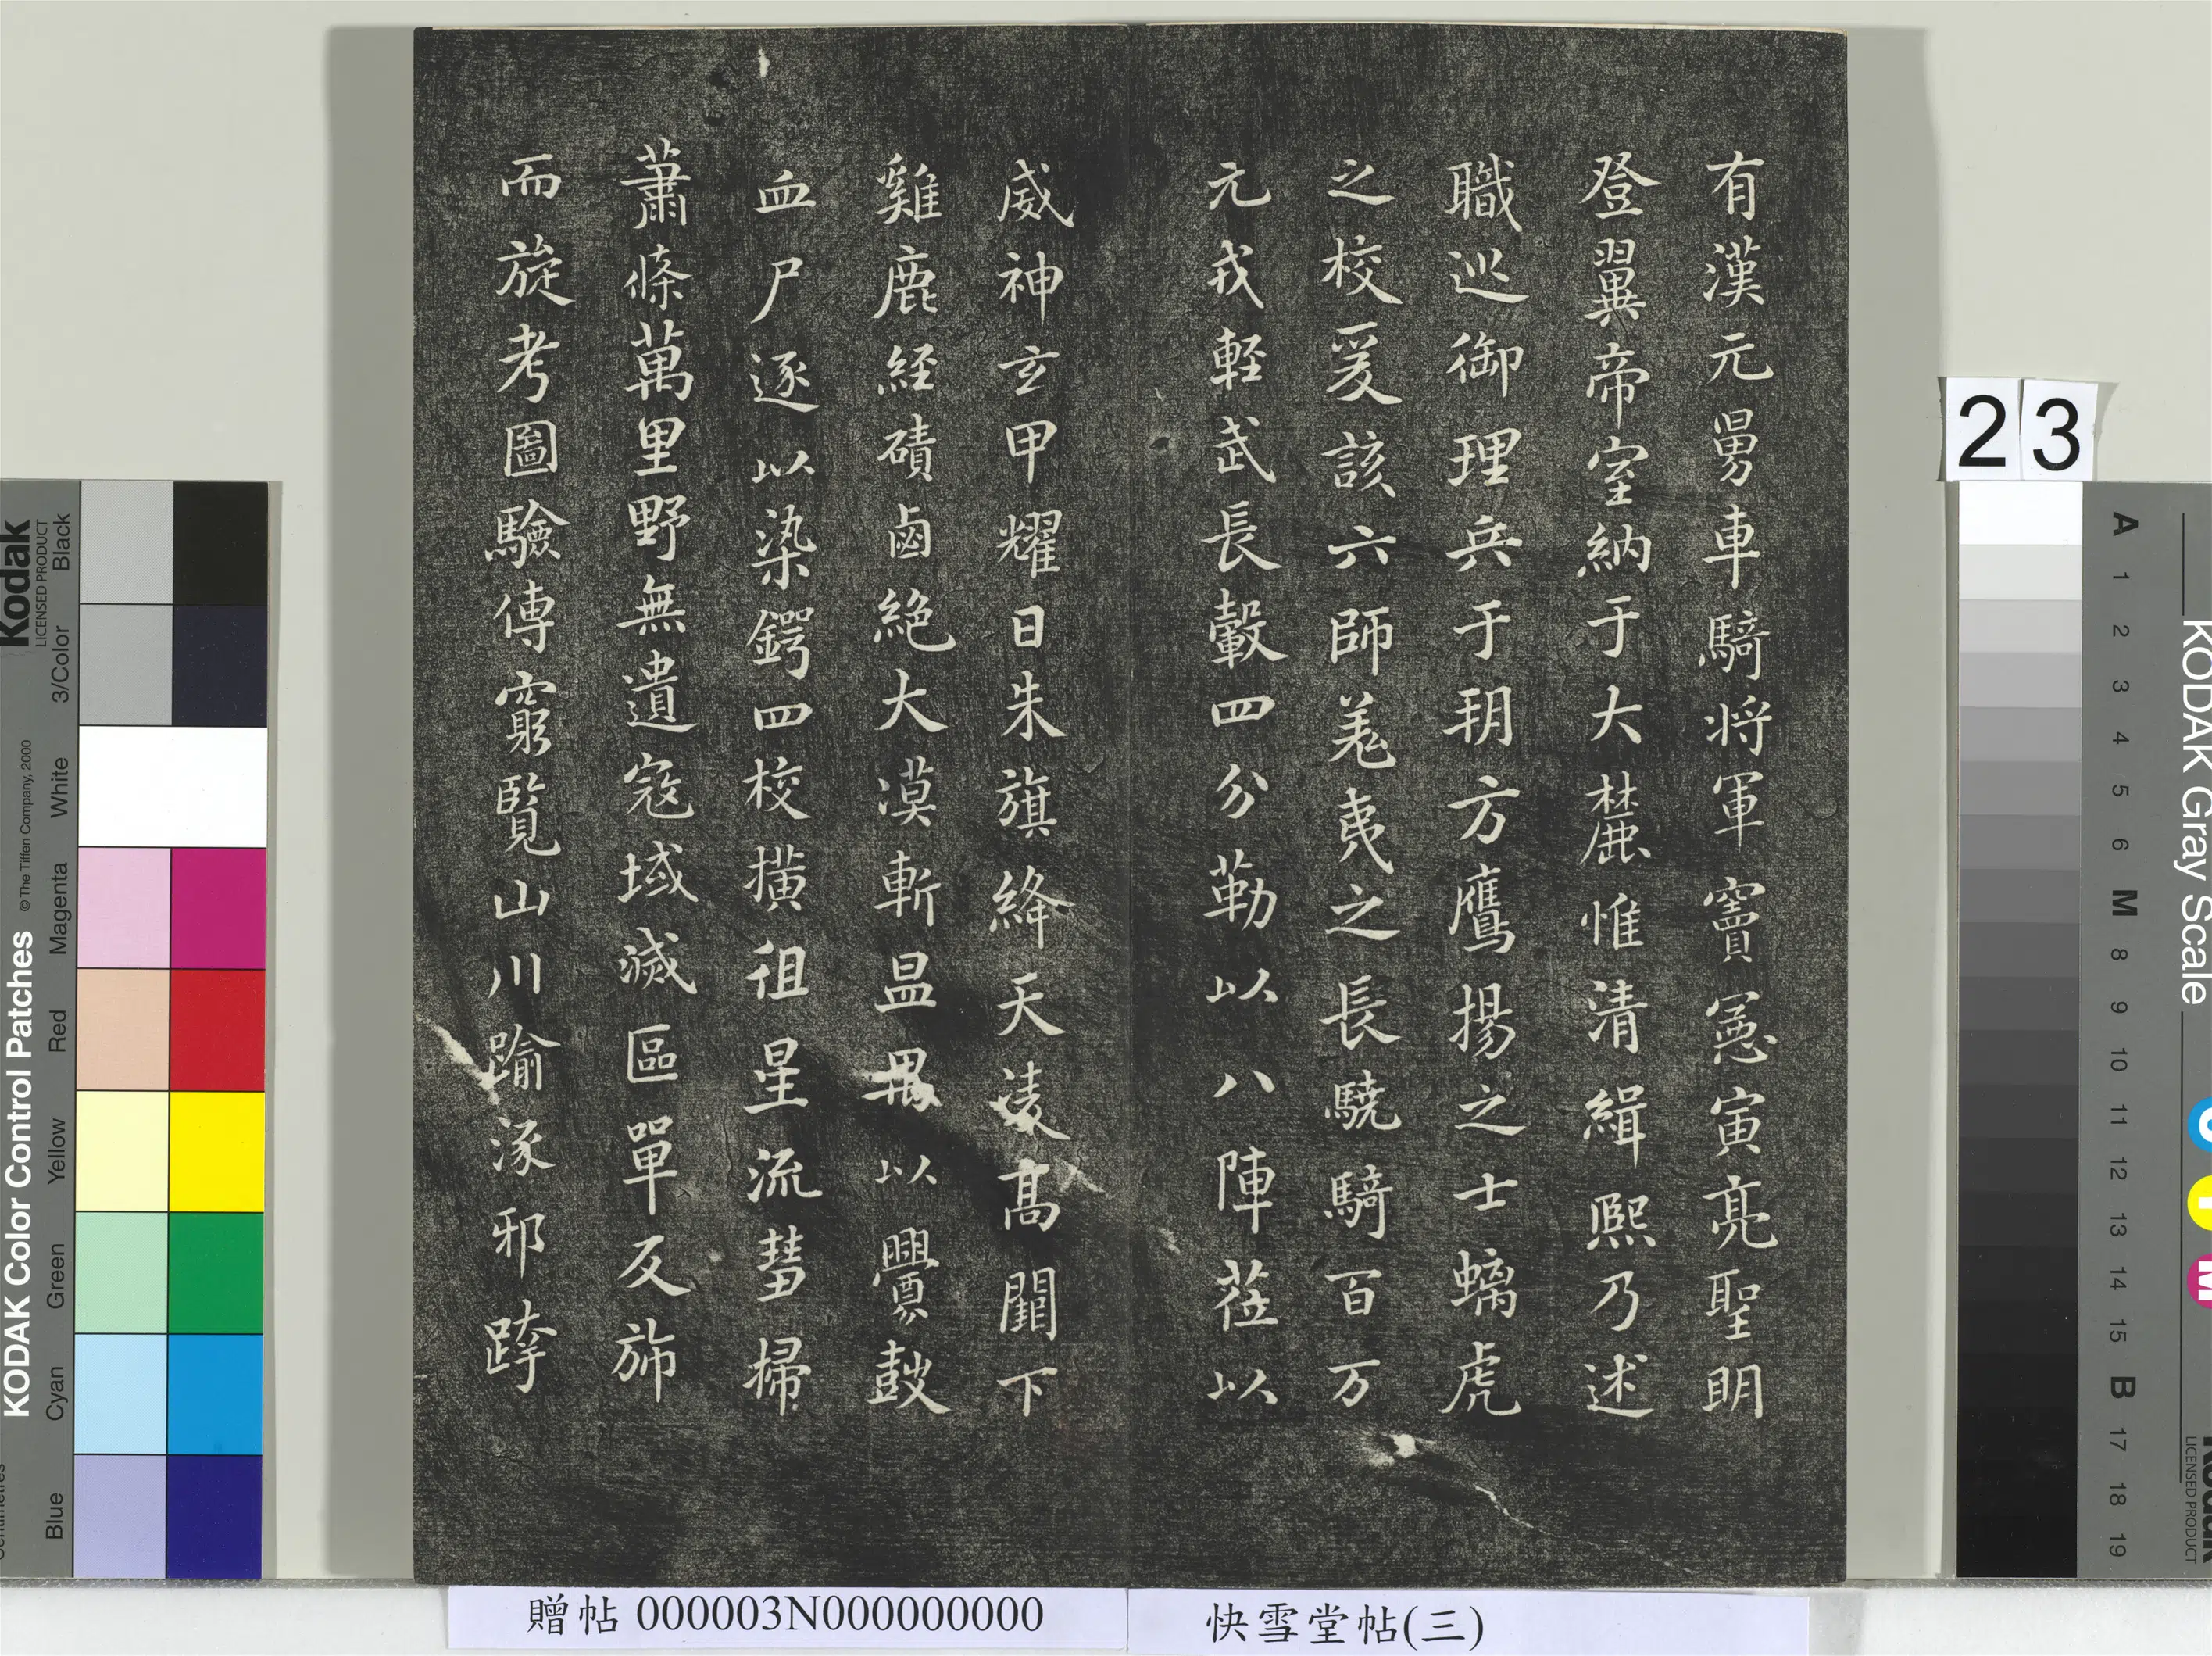 有漢元舅車騎将軍竇憲寅亮聖明
登翼帝室納于大麓惟清緝熙乃述
職巡御理兵于玥方鷹揚之士螭虎
之校爰該六師羌夷之長驍騎百万
元戎軽武長轂四分勒以八陣莅以
威神玄甲耀日朱旗絳天淩髙闕下
雞鹿経磧鹵絶大漠斬昷禺以釁鼓
血尸逐以染鍔四校橫徂星流彗掃
蕭條萬里野無遺寇域滅區單反斾
而旋考圖驗傳窮覧山川踰涿邪跨
23
贈帖 000003N000000000
快雪堂帖(三)
KODAK Color Control Patches
© The Tiffen Company, 2000
Kodak
LICENSED PRODUCT
Blue
Cyan
Green
Yellow
Red
Magenta
White
3/Color
Black
KODAK Gray Scale
A 1 2 3 4 5 6 M 8 9 10 11 12 13 14 15 B 17 18 19
C
Y
M
LICENSED PRODUCT